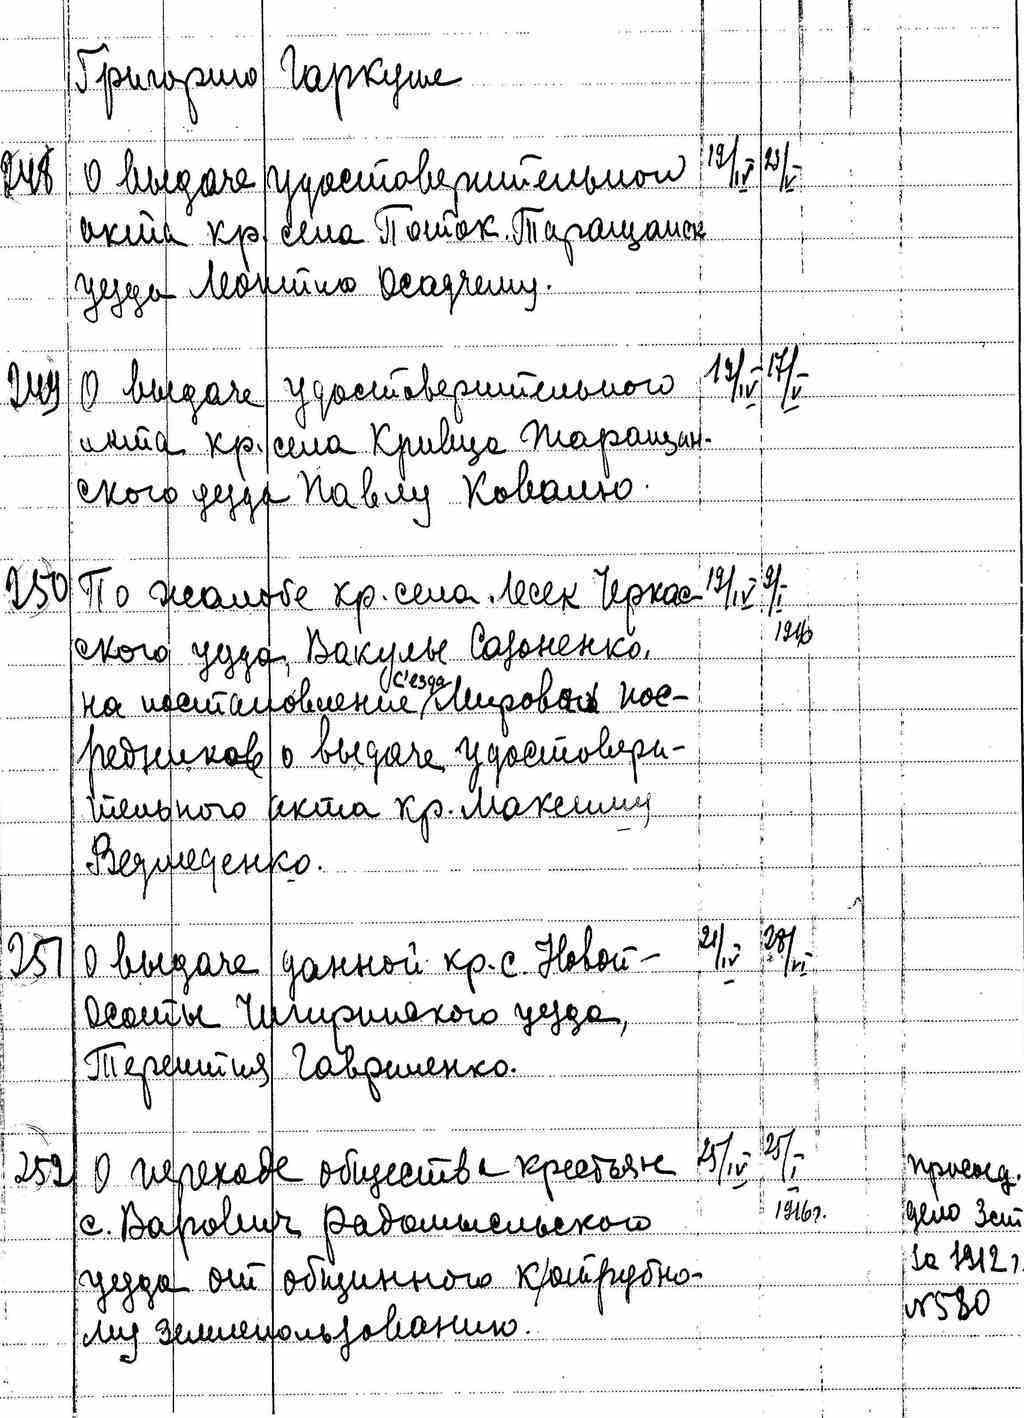 Григорию Гаркуше
248 О выдаче удостоверительного 19/IV 23/V
акта кр. села Поток Таращанск
уезда Леонтию Осадчему.
249 О выдаче удостоверительного 19/IV 17/V
акта кр. села Кривца Таращан-
ского уезда Павлу Ковалю.
250 По жалобе кр. села Лесек Черкас- 19/IV 9/I
ского уезда, Вакулы Сазоненко, 1916
на постановление съезда Мировых пос-
редников о выдаче удостовери-
тельного акта кр. Максиму
Ведмеденко.
251 О выдаче данной кр. с. Новой- 21/IV 28/VI
Осоты Чигиринского уезда,
Терентия Гавриленко.
252 О переходе общества крестьян 25/IV 25/I присоед.
с. Варович Радомысльского 1916г. дело
уезда от общинного к отрубно- за 1912 г.
му землепользованию. N580